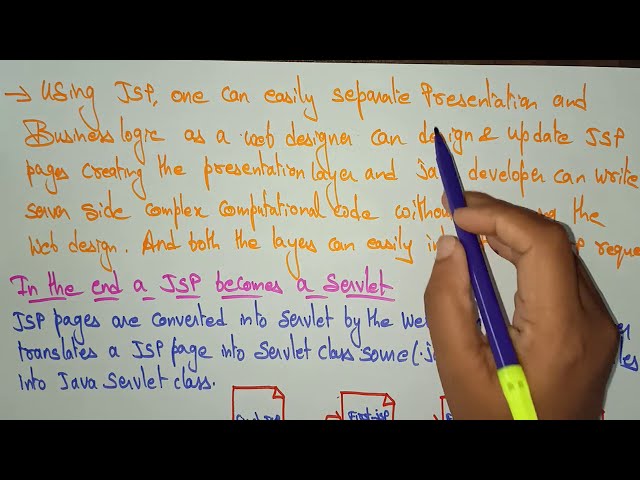 → Using JSP, one can easily separate Presentation and
Business logic as a web designer can design & update JSP
pages creating the presentation layer and developer can write
server side complex computational code the
web design. And both the layers can easily
In the end a JSP becomes a Servlet
JSP pages are converted into Servlet by the
translates a JSP page into Servlet class some
into Java Servlet class.
First.jsp